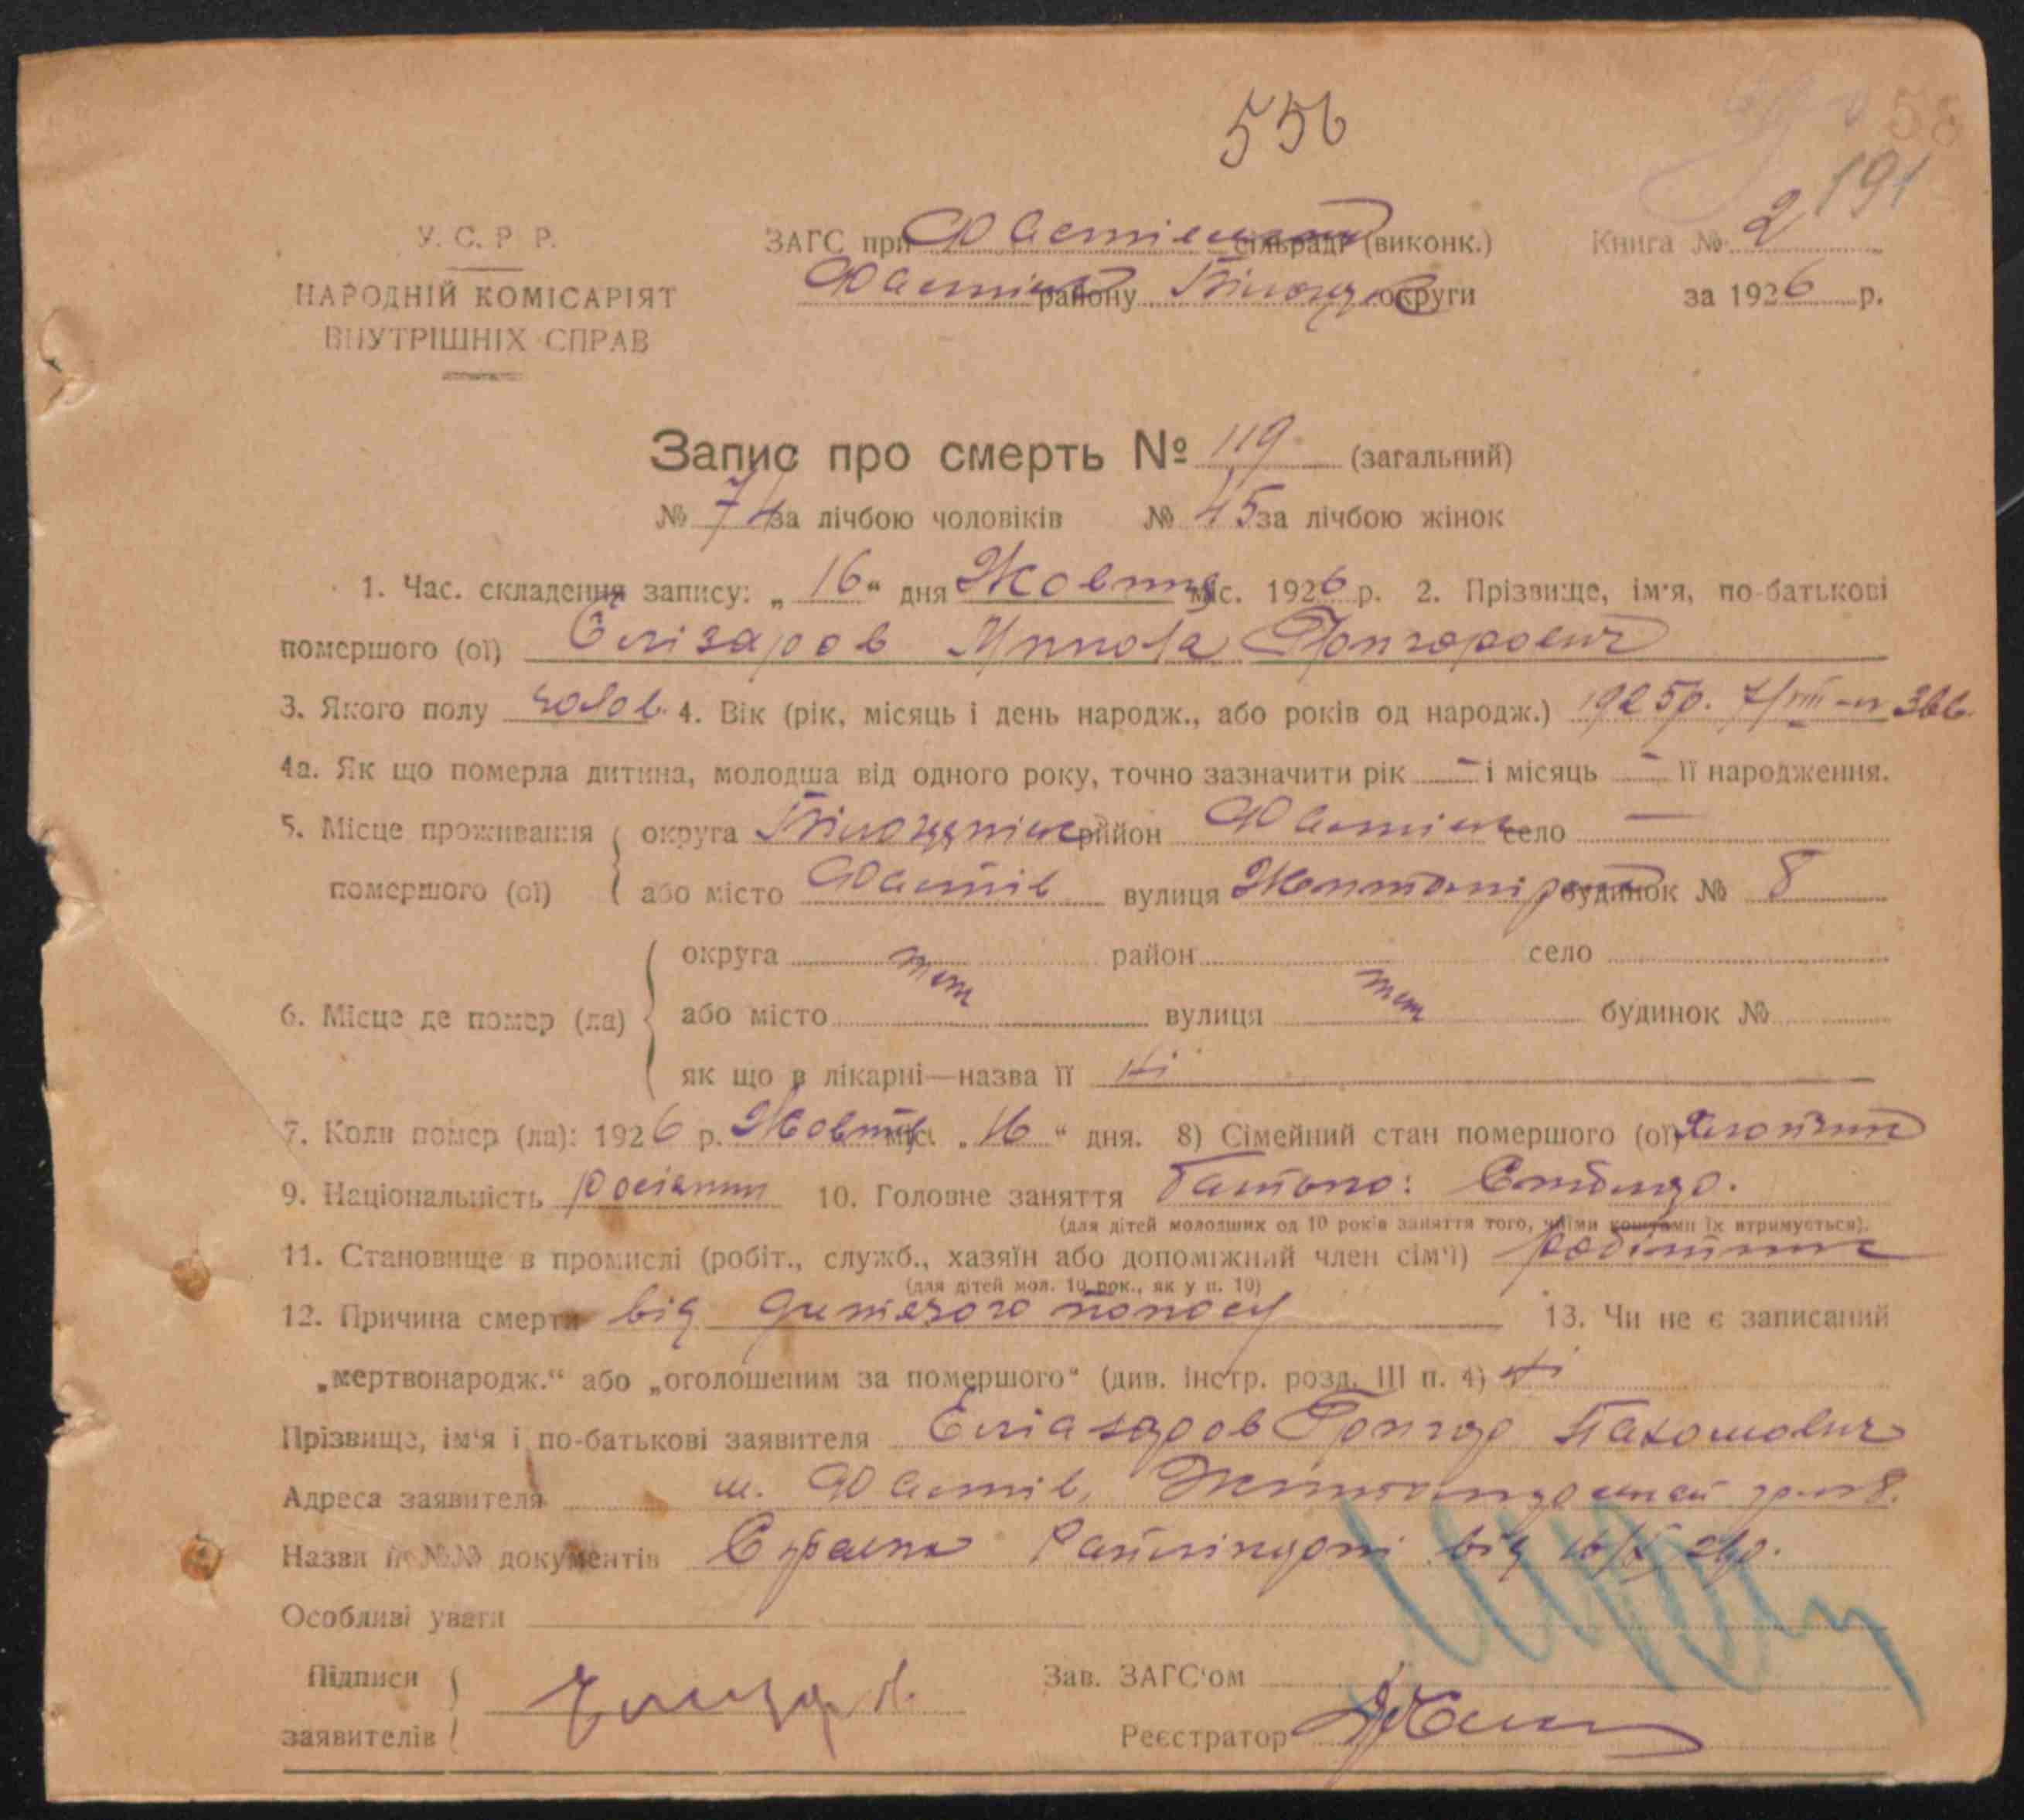 556
58
191
У. С. Р. Р.
ЗАГС при Фастівській сільраді (виконк.) Книга № 2
НАРОДНІЙ КОМІСАРІЯТ
району округи за 1926 р.
ВНУТРІШНІХ СПРАВ
Запис про смерть № 119 (загальний)
№ 74 за лічбою чоловіків № 45 за лічбою жінок
1. Час. складення запису: „16“ дня Жовтня міс. 1926 р. 2. Прізвище, ім'я, по-батькові
помершого (ої) Єлізаров Микола Григорович
3. Якого полу чолов. 4. Вік (рік, місяць і день народж., або років од народж.) 1925р. 7/VIII-
4а. Як що померла дитина, молодша від одного року, точно зазначити рік — і місяць — її народження.
5. Місце проживання округа район село —
помершого (ої) або місто Фастів вулиця будинок № 8
округа район село
тет тет
6. Місце де помер (ла) або місто вулиця будинок №
як що в лікарні—назва її Ні
7. Коли помер (ла): 1926 р. Жовтня міс. „16“ дня. 8) Сімейний стан помершого (ої)
9. Національність росіянин 10. Головне заняття Батько:
(для дітей молодших од 10 років заняття того, чиїми коштами їх втримується).
11. Становище в промислі (робіт., служб., хазяїн або допоміжний член сім'ї) робітник
(для дітей мол. 10 рок., як у п. 10)
12. Причина смерти від дитячого поносу 13. Чи не є записаний
„мертвонародж.“ або „оголошеним за помершого“ (див. інстр. розд. III п. 4) Ні
Прізвище, ім'я і по-батькові заявителя Еліазаров Григор Пахомович
Адреса заявителя м. Фастів, 8.
Назви й №№ документів від 16/X 26р.
Особливі уваги
Підписи Зав. ЗАГС'ом
заявителів Реєстратор